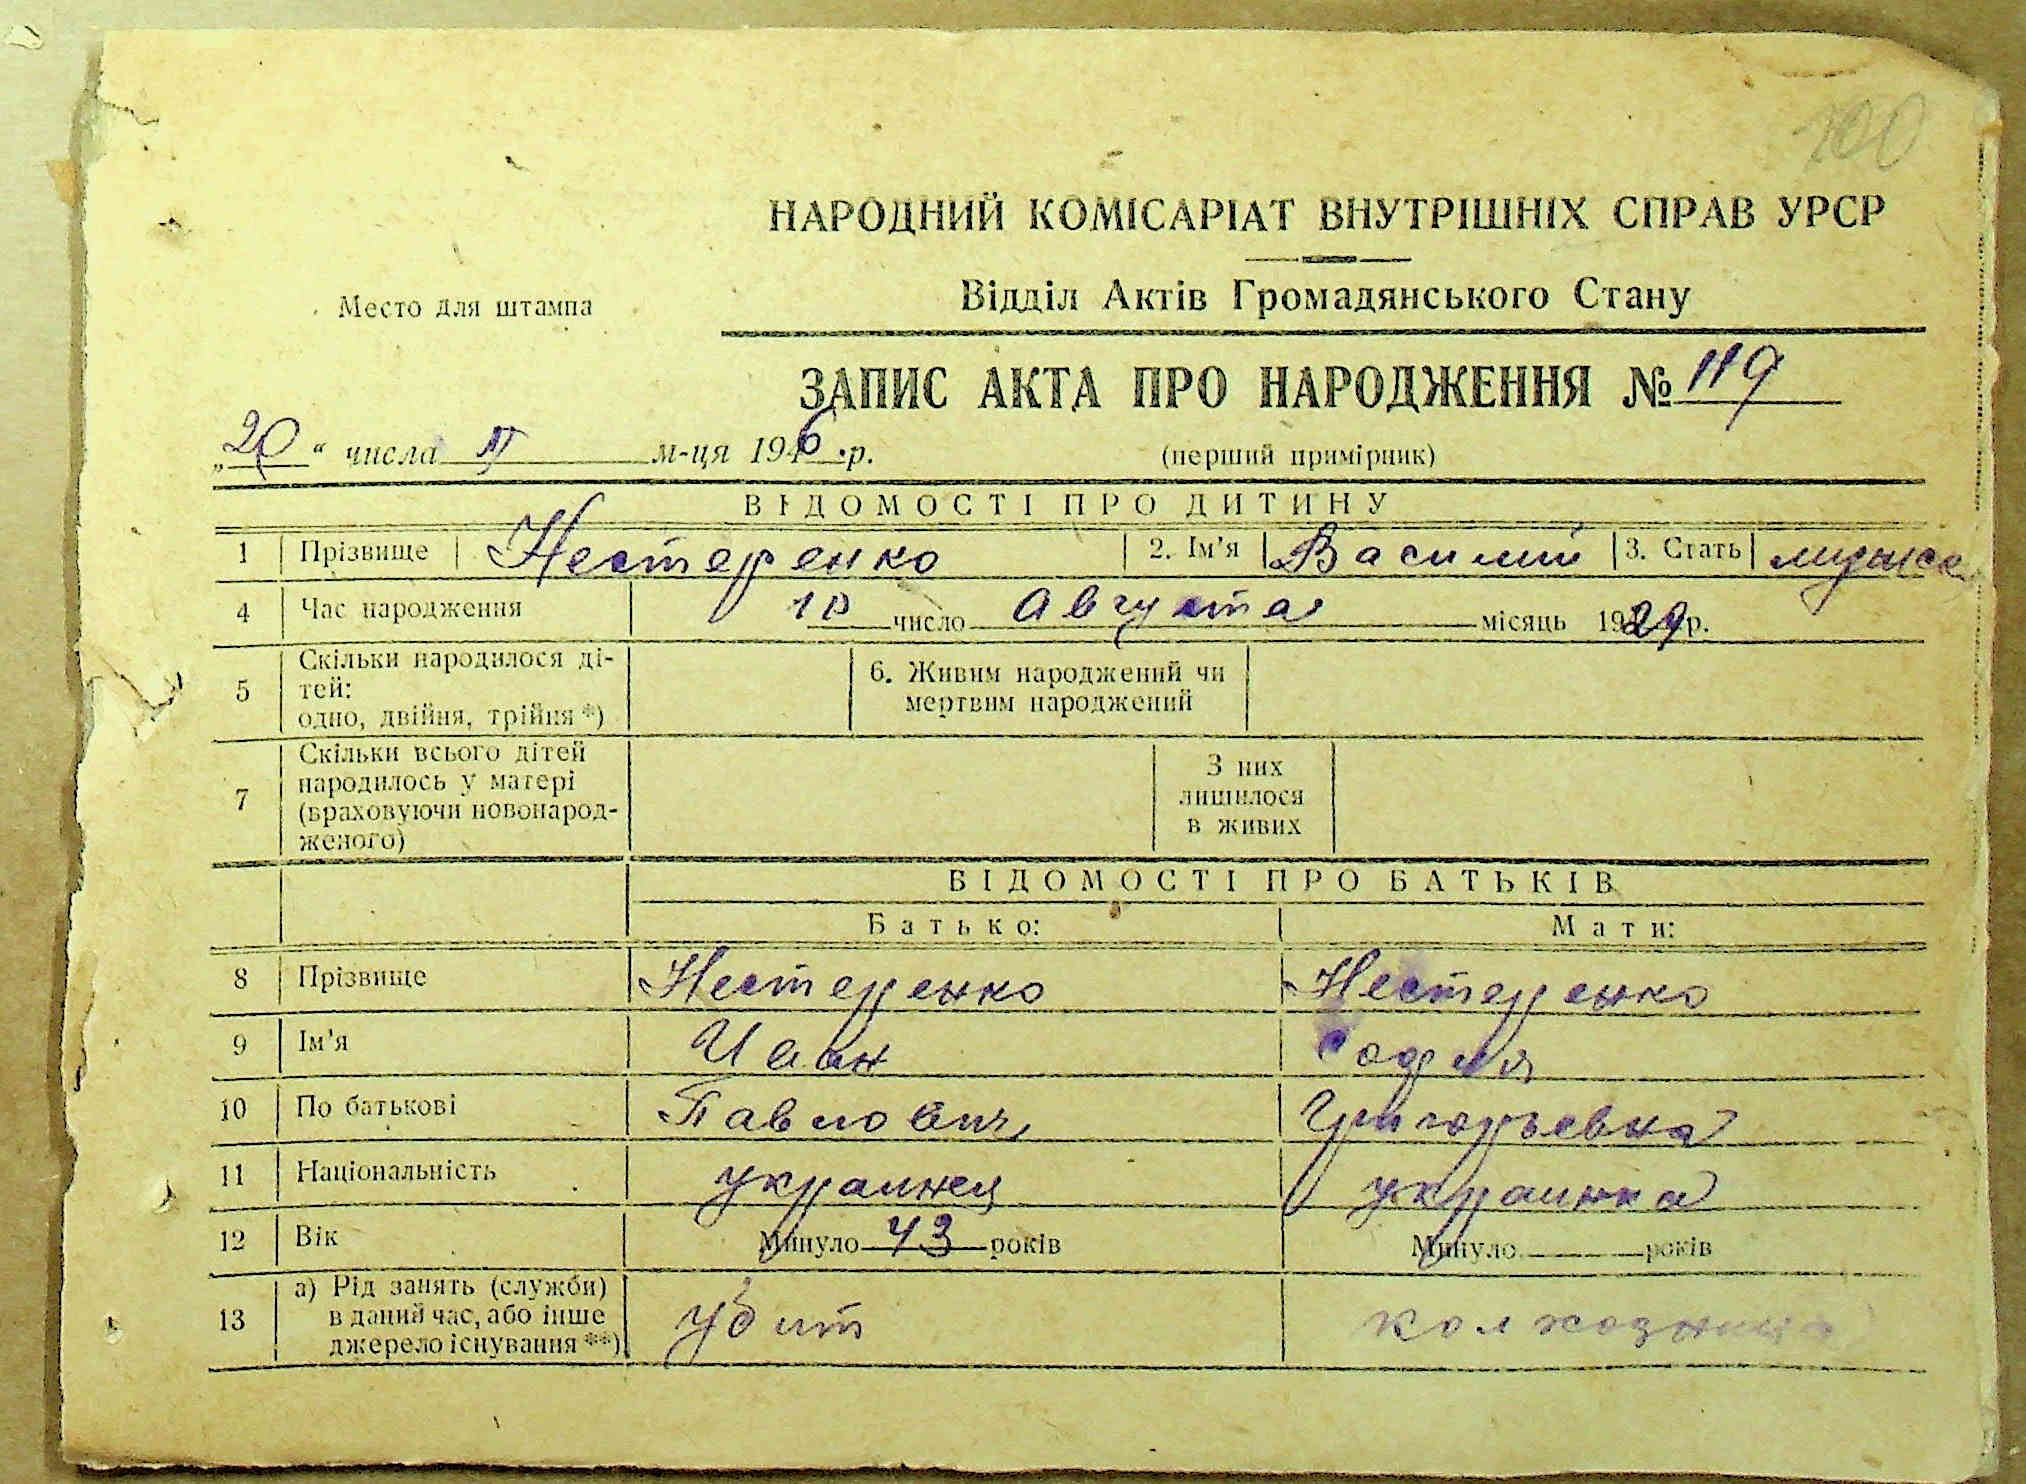 200
НАРОДНИЙ КОМІСАРІАТ ВНУТРІШНІХ СПРАВ УРСР
Место для штампа
Відділ Актів Громадянського Стану
ЗАПИС АКТА ПРО НАРОДЖЕННЯ № 119
„20“ числа IV м-ця 1946 р. (перший примірник)
ВІДОМОСТІ ПРО ДИТИНУ
1 Прізвище Нестеренко 2. Ім'я Василий 3. Стать мужск
4 Час народження 10 число Августа місяць 1929 р.
5 Скільки народилося ді-
тей:
одно, двійня, трійня *)
6. Живим народжений чи
мертвим народжений
7 Скільки всього дітей
народилось у матері
(враховуючи новонарод-
женого)
З них
лишилося
в живих
ВІДОМОСТІ ПРО БАТЬКІВ
Батько: Мати:
8 Прізвище Нестеренко Нестеренко
9 Ім'я Иван София
10 По батькові Павлович Григорьевна
11 Національність украинец украинка
12 Вік Минуло 43 років Минуло років
13 а) Рід занять (служби)
в даний час, або інше
джерело існування **)
убит колхозница